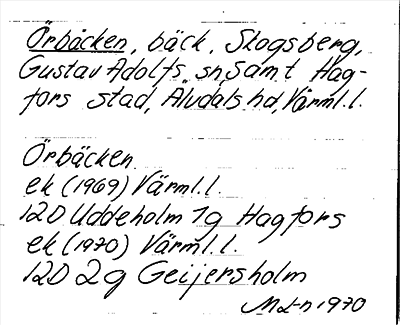 Örbäcken, bäck, Skogsberg,
Gustav Adolfs sn, samt Hag-
fors stad, Älvdals hd, Värml.l.
Örbäcken
ek (1969) Värml.l.
12D Uddeholm 1g Hagfors
ek (1970) Värml.l.
12D 2g Geijersholm
1970